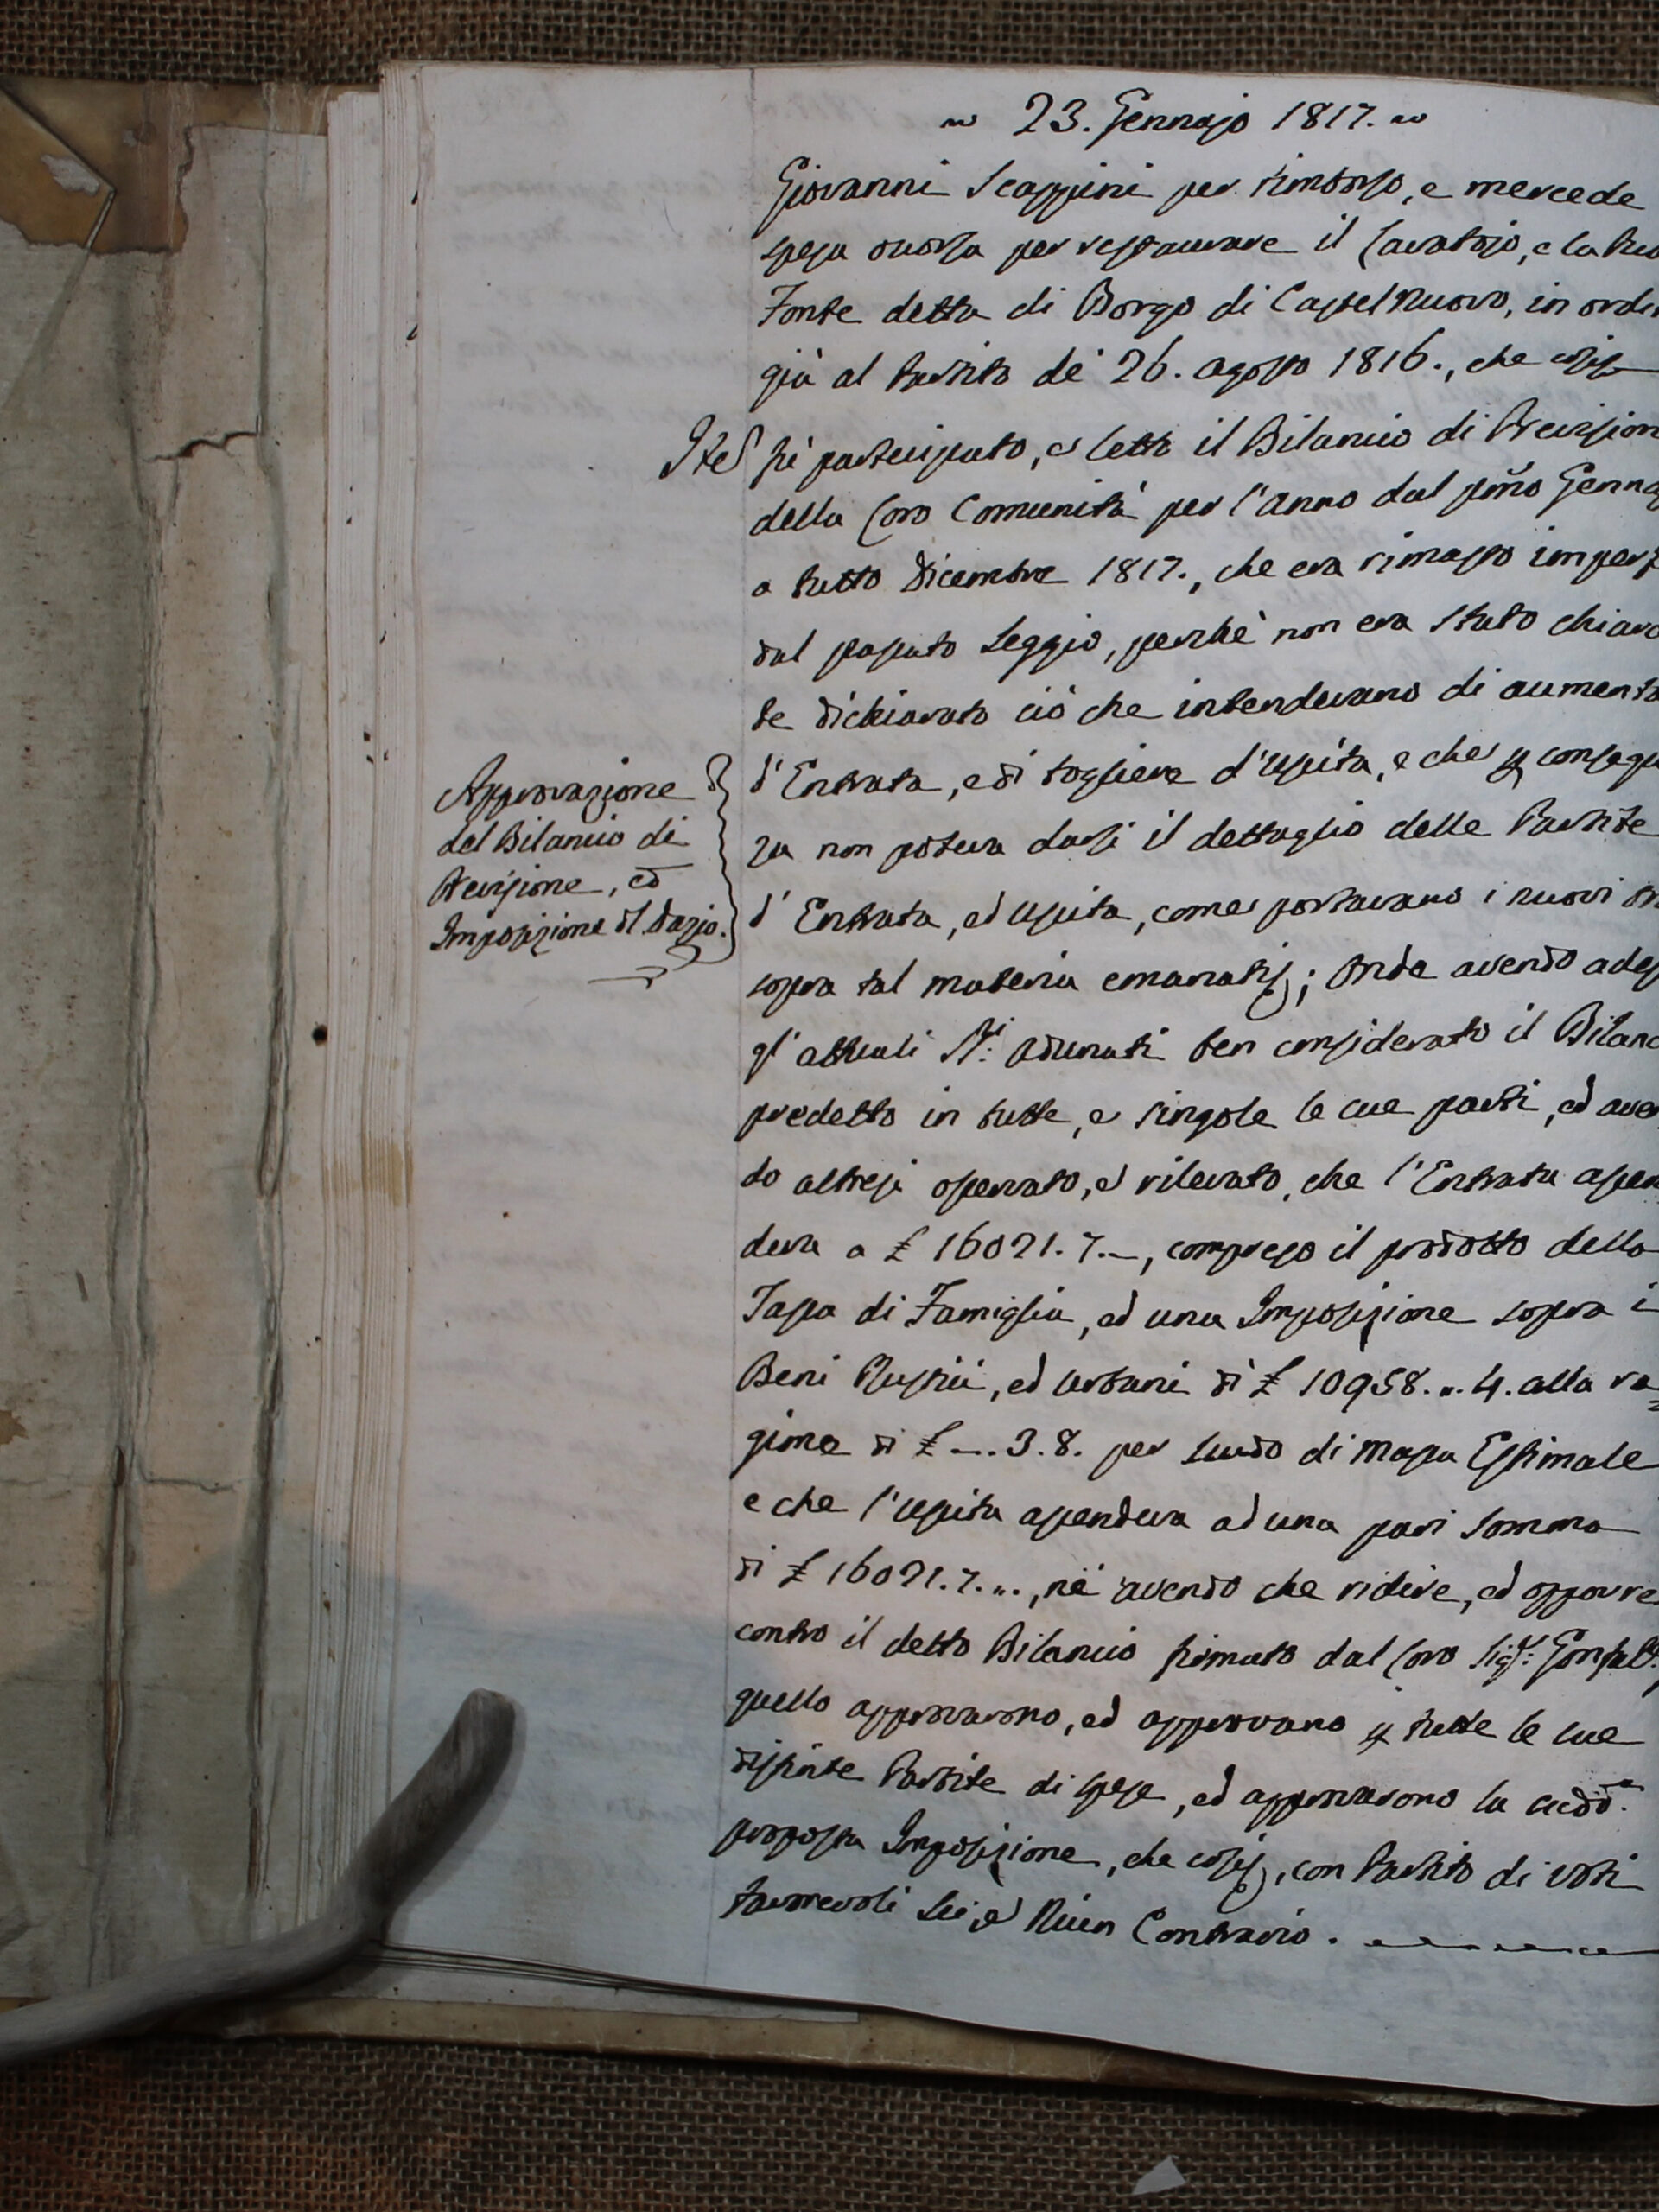 23. Gennajo 1817.
Giovanni Scappini per rimborso, e mercede
spesa occorsa per restaurare il Lavatojo, e la
Fonte detta di Borgo di Castelnuovo, in ordi
già al Partito de' 26. agosto 1816., che cosij
Ite fù partecipato, e letto il Bilancio di Prevision
della Loro Comunità per l'anno dal pmo Genna
a tutto Dicembre 1817., che era rimasto imper
dal passato Seggio, perchè non era stato chiara
te dichiarato ciò che intendevano di aumenta
d'Entrata, e di togliere d'Uscita, e che p consegu
za non poteva darsi il dettaglio delle Partite
d'Entrata, ed Uscita, come portavano i nuovi or
sopra tal materia emanatij; Onde avendo ades
gl'attuali SS.ri Adunati ben considerato il Bilanc
predetto in tutte, e singole le sue parti, ed aven
do altresi osservato, e rilevato, che l'Entrata ascen
deva a £ 16021. 7. —, compreso il prodotto della
Tassa di Famiglia, ed una Imposizione sopra i
Beni Rustici, ed Urbani di £ 10958. „. 4. alla ra
gione di £ —. 3. 8. per Scudo di Massa Estimale
e che l'Uscita ascendeva ad una pari somma
di £ 16021. 7. „., nè avendo che ridire, ed opporre
contro il detto Bilancio firmato dal Loro Sig.r Gonfal.re
quello approvarono, ed approvano p tutte le sue
distinte Partite di spese, ed approvarono la
proposta Imposizione, che cosij, con Partito di Voti
favorevoli Sei, e Niun Contrario.
Approvazione
del Bilancio di
Previsione, ed
Imposizione del Dazio.